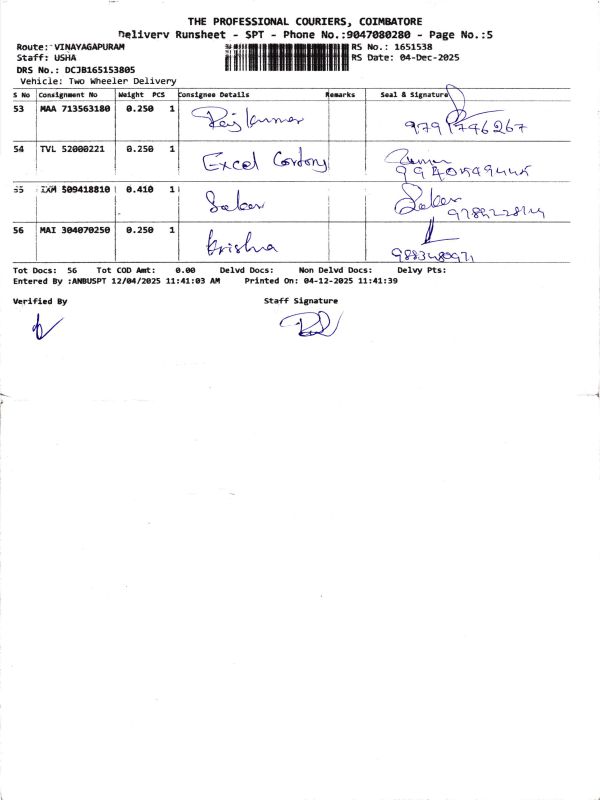 THE PROFESSIONAL COURIERS, COIMBATORE
Delivery Runsheet - SPT - Phone No.:9047080280 - Page No.:5
Route: VINAYAGAPURAM RS No.: 1651538
Staff: USHA RS Date: 04-Dec-2025
DRS No.: DCJB165153805
Vehicle: Two Wheeler Delivery
S No Consignment No Weight PCS Consignee Details Remarks Seal & Signature
53 MAA 713563180 0.250 1 Rajkumar 9791746267
54 TVL 52000221 0.250 1 Excel
55 IXM 509418810 0.410 1
56 MAI 304070250 0.250 1 Krishna
Tot Docs: 56 Tot COD Amt: 0.00 Delvd Docs: Non Delvd Docs: Delvy Pts:
Entered By :ANBUSPT 12/04/2025 11:41:03 AM Printed On: 04-12-2025 11:41:39
Verified By Staff Signature